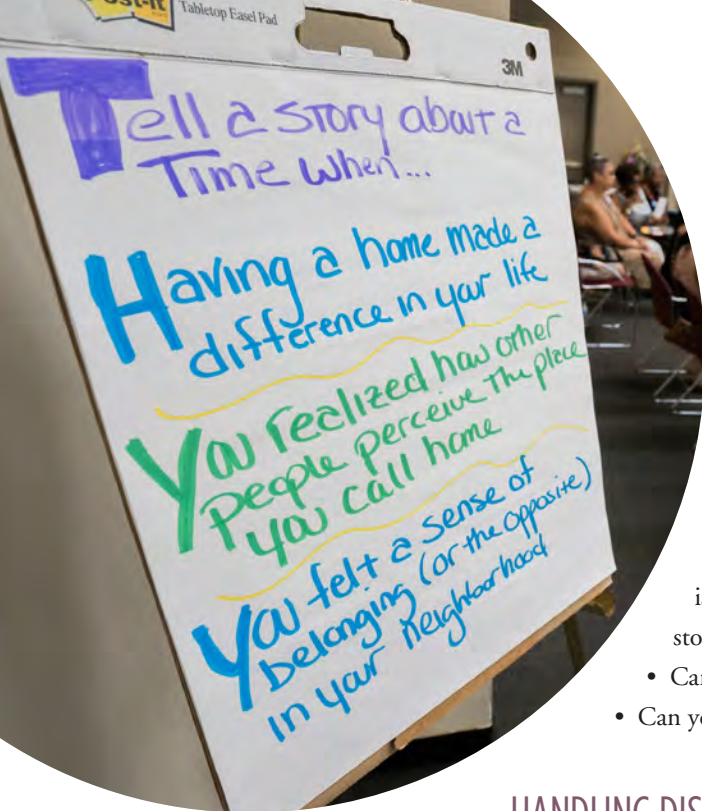 Post-it
Tabletop Easel Pad
3M
Tell a story about a
Time when...
Having a home made a
difference in your life
You realized how other
people perceive the place
you call home
You felt a sense of
belonging (or the opposite)
in your neighborhood
sto
• Ca
• Can yo
HANDLING DIS